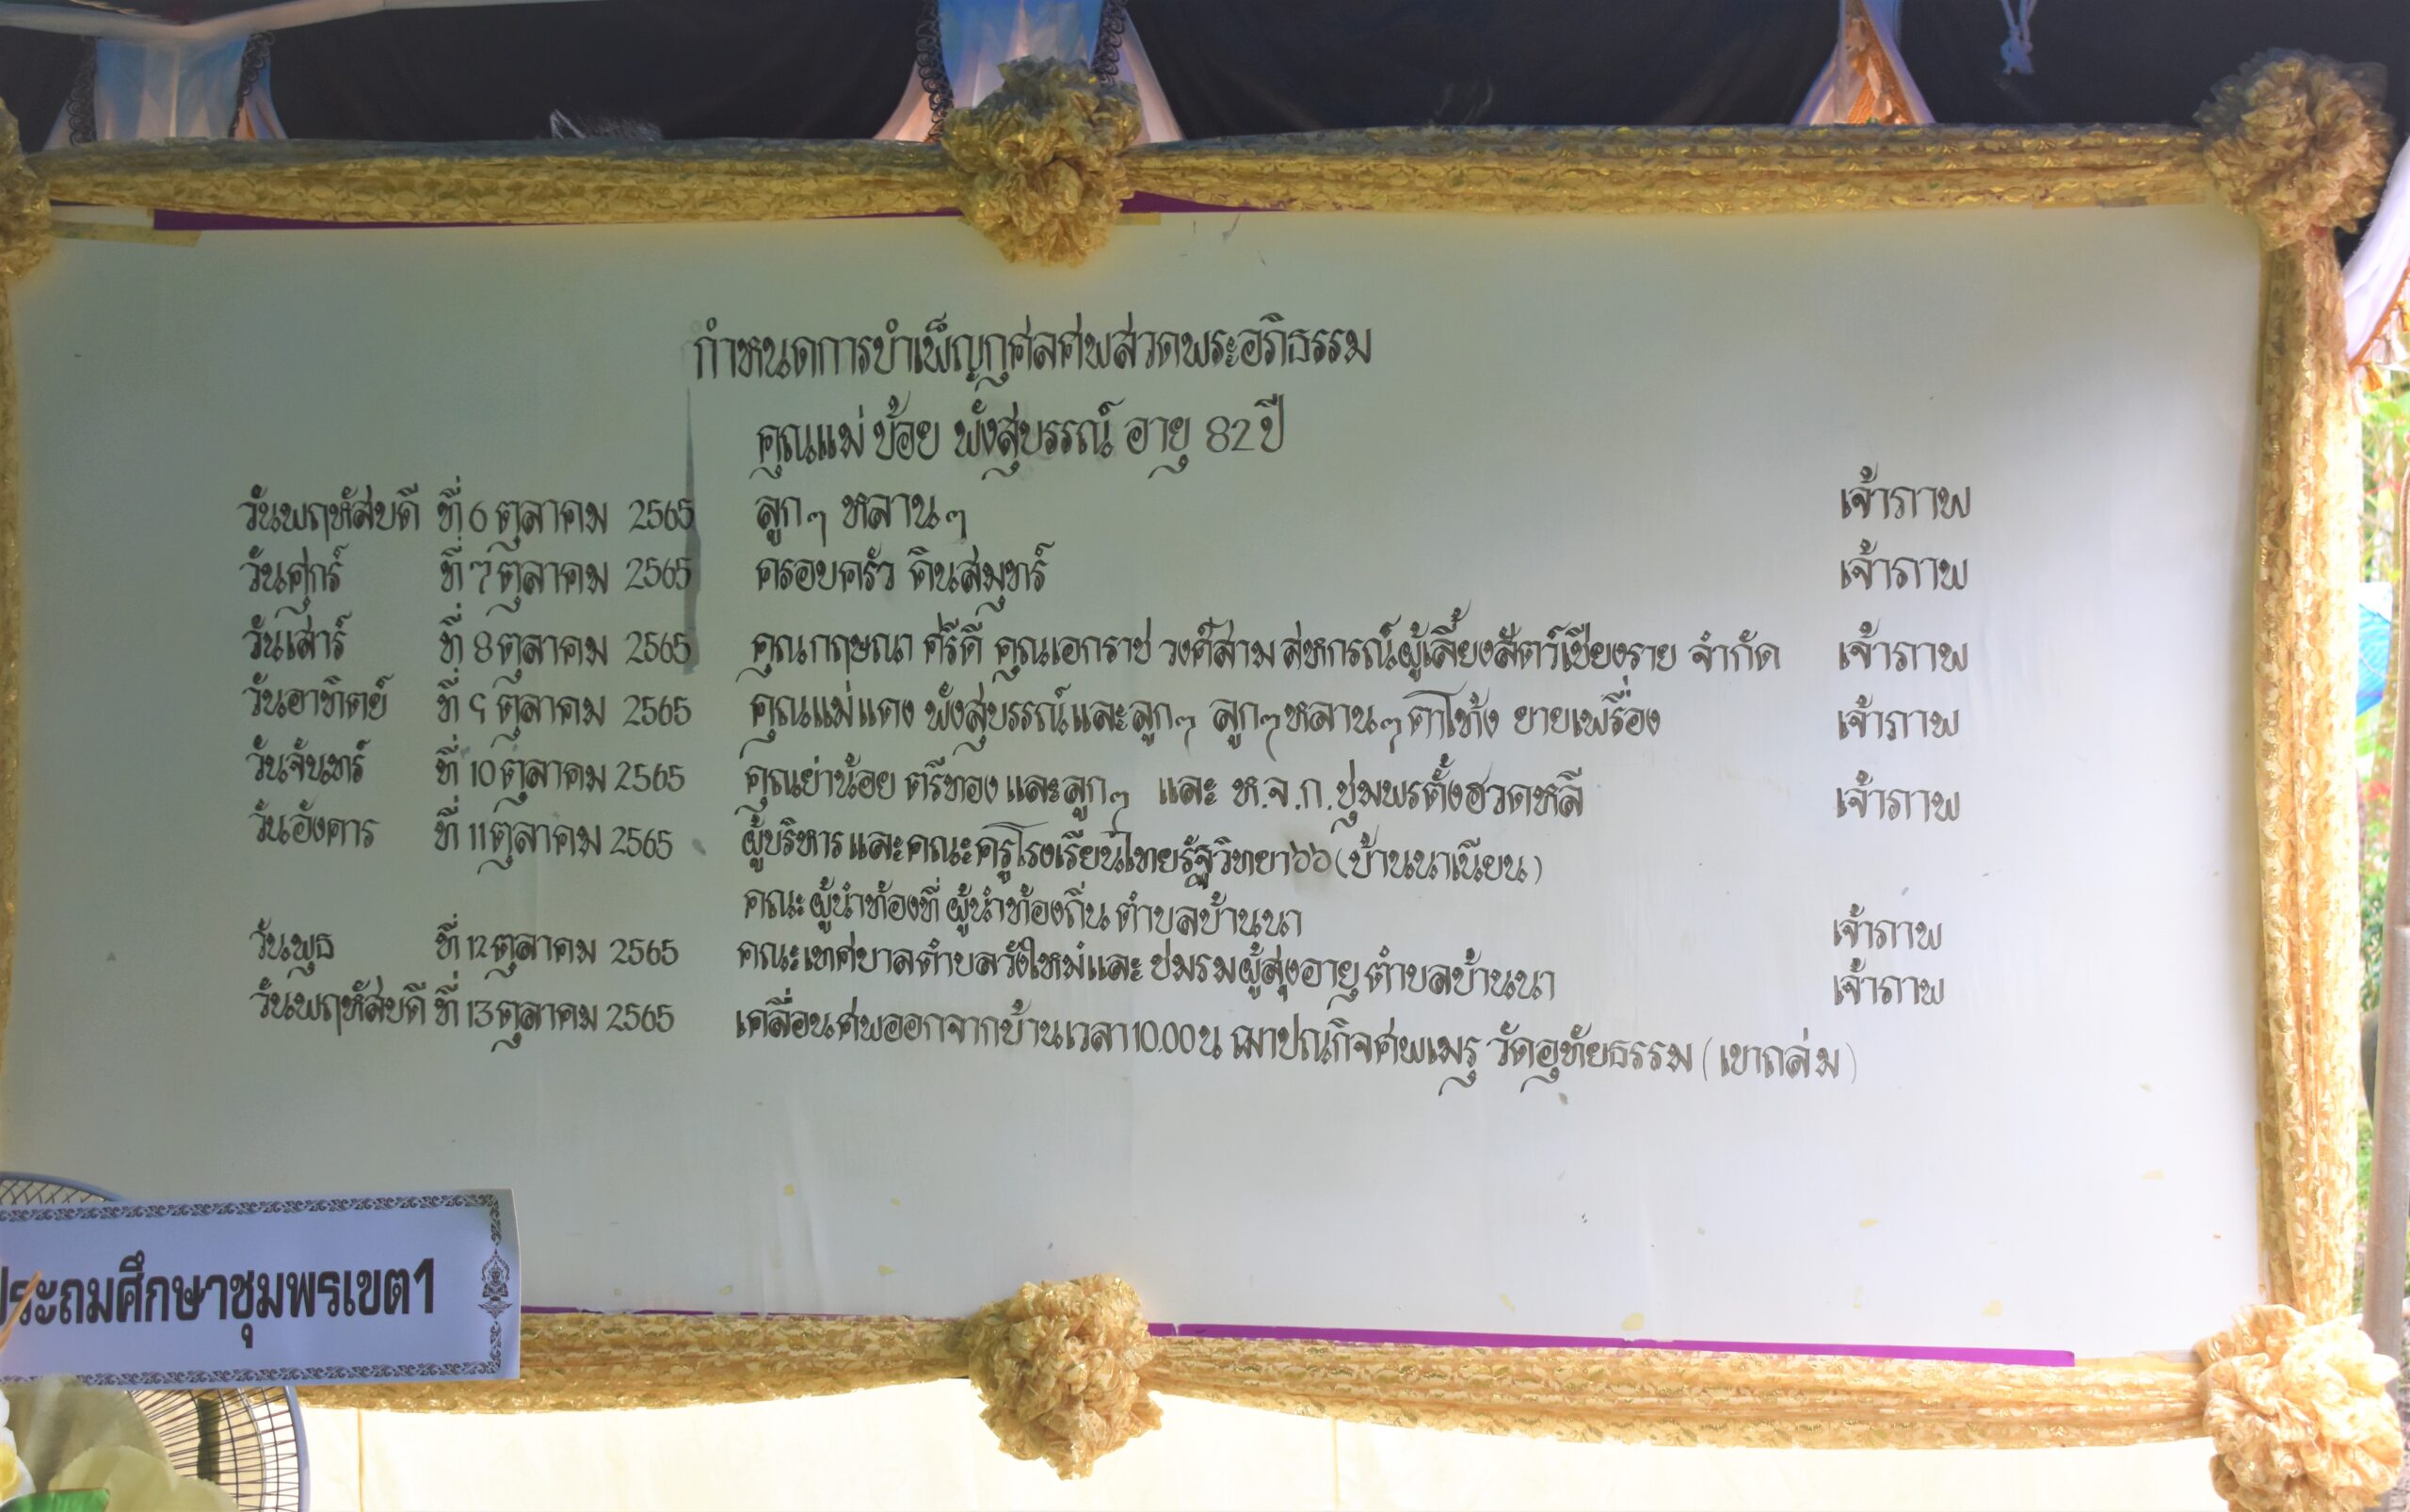 กำหนดการบำเพ็ญกุศลศพสวดพระอภิธรรม
คุณแม่ บ้อย พังสุบรรณ์ อายุ 82 ปี
วันพฤหัสบดี ที่ 6 ตุลาคม 2565 ลูกๆ หลานๆ เจ้าภาพ
วันศุกร์ ที่ 7 ตุลาคม 2565 ครอบครัว ถิ่นสมุทร์ เจ้าภาพ
วันเสาร์ ที่ 8 ตุลาคม 2565 คุณกฤษณา ศรีดี คุณเอกราช วงศ์สาม สหกรณ์ผู้เลี้ยงสัตว์เชียงราย จำกัด เจ้าภาพ
วันอาทิตย์ ที่ 9 ตุลาคม 2565 คุณแม่แดง พังสุบรรณ์และลูกๆ ลูกๆหลานๆ ตาโท้ง ยายเพรื่อง เจ้าภาพ
วันจันทร์ ที่ 10 ตุลาคม 2565 คุณย่าน้อย ตรีทอง และลูกๆ และ ห.จ.ก.ชุมพรตั้งฮวดหลี เจ้าภาพ
วันอังคาร ที่ 11 ตุลาคม 2565 ผู้บริหารและคณะครูโรงเรียนไทยรัฐวิทยา๖๖(บ้านนาเนียน)
คณะผู้นำท้องที่ ผู้นำท้องถิ่น ตำบลบ้านนา เจ้าภาพ
วันพุธ ที่ 12 ตุลาคม 2565 คณะเทศบาลตำบลวังใหม่และ ชมรมผู้สุงอายุ ตำบลบ้านนา เจ้าภาพ
วันพฤหัสบดี ที่ 13 ตุลาคม 2565 เคลื่อนศพออกจากบ้านเวลา10.00น ฌาปณกิจศพเมรุ วัดอุทัยธรรม (เขาถล่ม)
ประถมศึกษาชุมพรเขต1